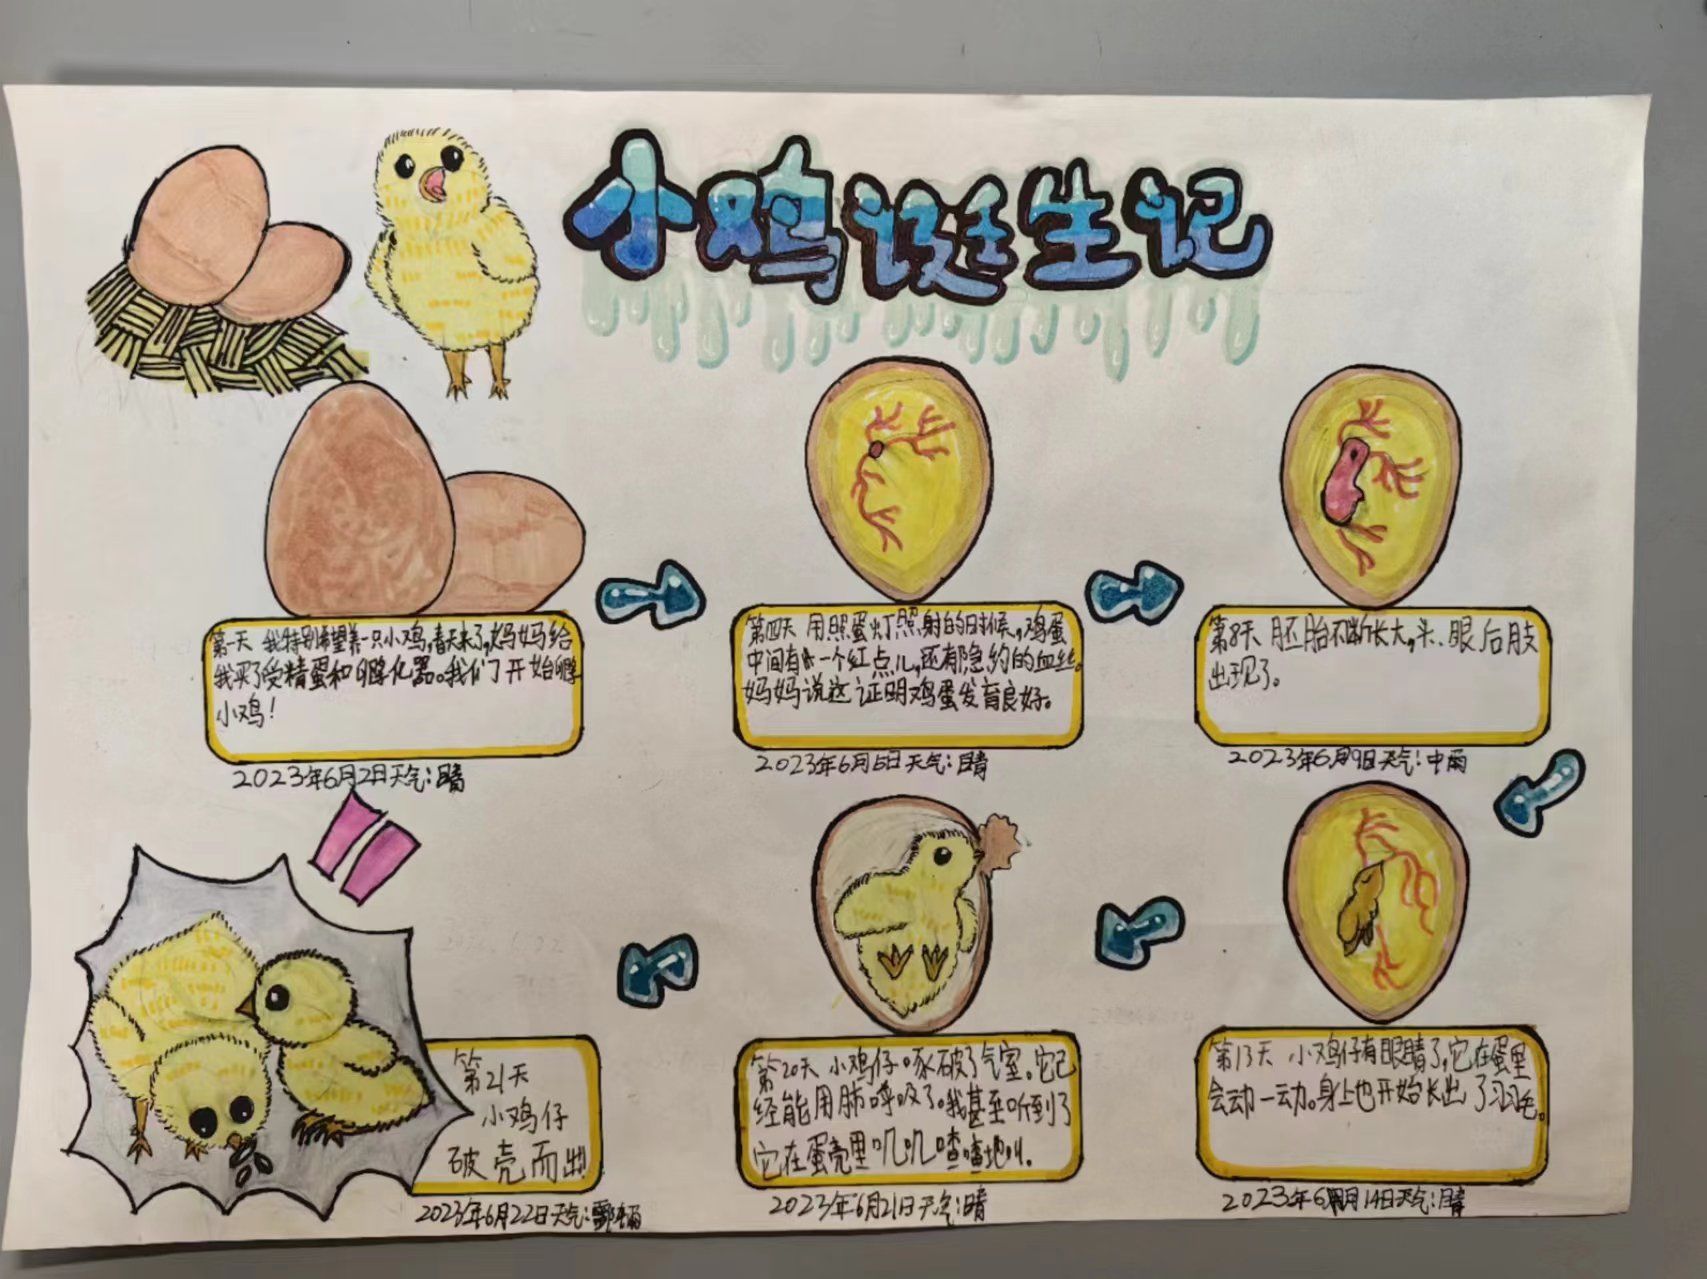 小鸡诞生记
第一天 我特别希望养一只小鸡,春天来了,妈妈给
我买了受精蛋和孵化器。我们开始孵
小鸡!
2023年6月2日天气:晴
第四天 用照蛋灯照射的时候,鸡蛋
中间有一个红点儿,还有隐约的血丝。
妈妈说这证明鸡蛋发育良好。
2023年6月5日天气:晴
第8天 胚胎不断长大,头、眼后肢
出现了。
2023年6月9日天气:中雨
第13天 小鸡仔有眼睛了,它在蛋里
会动一动。身上也开始长出了羽毛。
2023年6月14日天气:晴
第20天 小鸡仔啄破了气室。它已
经能用肺呼吸了。我甚至听到了
它在蛋壳里叽叽喳喳地叫。
2023年6月21日天气:晴
第21天
小鸡仔
破壳而出!
2023年6月22日天气: